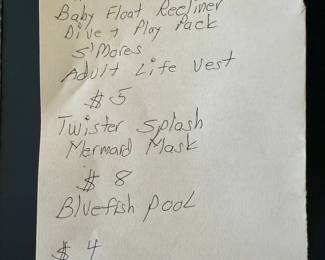 Baby Float Recliner
Dive + Play Pack
S'Mores
Adult Life Vest
$5
Twister Splash
Mermaid Mask
$8
Bluefish Pool
$4